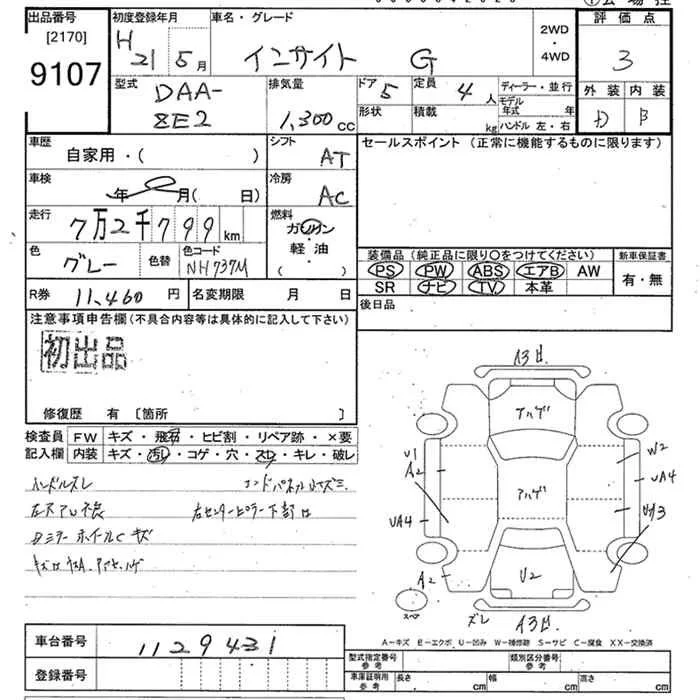 出品番号
[2170]
9107
初度登録年月
H 21 5月
車名・グレード
インサイト G
2WD
・
4WD
評価点
3
型式
DAA-
ZE2
排気量
1,300cc
ドア
5
定員
4人
ディーラー・並行
モデル年式 年
形状
積載 kg
ハンドル 左・右
外装 内装
D B
車歴
自家用・( )
シフト
AT
セールスポイント (正常に機能するものに限ります)
車検
年 月( 日)
冷房
AC
走行
7万2千799km
燃料
ガソリン
・
軽油
( )
色
グレー
色替
色コード
NH737M
装備品 (純正品に限り○をつけてください)
新車保証書
PS PW ABS エアB AW
SR ナビ TV 本革
有・無
R券 11,460円
名変期限 月 日
後日品
注意事項申告欄(不具合内容等は具体的に記入して下さい)
初出品
修復歴 有 [箇所 ]
検査員
記入欄
FW キズ・飛石・ヒビ割・リペア跡・×要
内装 キズ・汚レ・コゲ・穴・スレ・キレ・破レ
ハンドルスレ
Dミラー ホイールC キズ
右センターピラー下部
A3d.
アハゲ
アハゲ
U2
U1
A2
UA4
A2
W2
UA4
スペア
ズレ
A3d.
A-キズ E-エクボ U-凹み W-補修跡 S-サビ C-腐食 XX-交換済
車台番号
1129431
登録番号
型式指定番号
参考
類別区分番号
参考
車庫証明用
参考
長さ cm
幅 cm
高さ cm